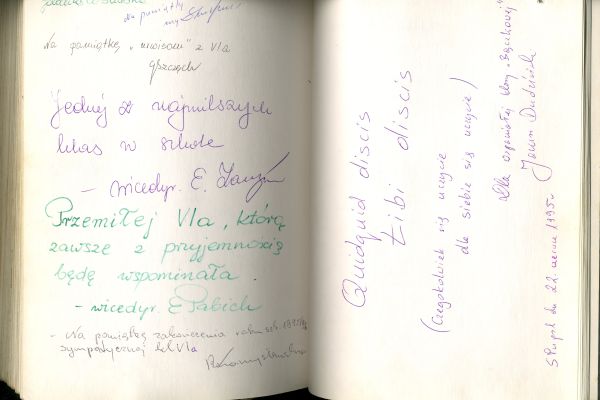 na pamiątkę
Na pamiątkę „misiom" z VIa
Jednej z najmilszych
klas w szkole
– wicedyr. E.
Przemiłej VIa, którą
zawsze z przyjemnością
będę wspominała.
– wicedyr. E Pabich
– Na pamiątkę zakończenia roku szk.
sympatycznej kl. VIa
Quidquid discis
tibi discis
(Czegokolwiek się uczycie
dla siebie się uczycie)
Dla wspaniałej klasy
Słupsk dn 22 czerwca 1995r